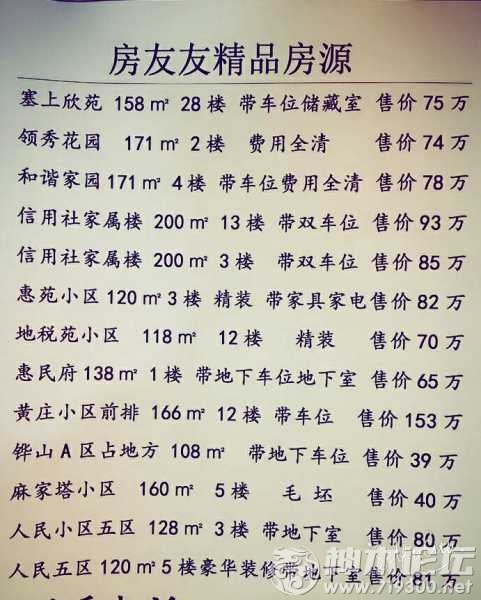 房友友精品房源
塞上欣苑 158㎡ 28楼 带车位储藏室 售价75万
领秀花园 171㎡ 2楼 费用全清 售价74万
和谐家园 171㎡ 4楼 带车位费用全清 售价78万
信用社家属楼 200㎡ 13楼 带双车位 售价93万
信用社家属楼 200㎡ 3楼 带双车位 售价85万
惠苑小区 120㎡ 3楼 精装 带家具家电售价82万
地税苑小区 118㎡ 12楼 精装 售价70万
惠民府 138㎡ 1楼 带地下车位地下室 售价65万
黄庄小区前排 166㎡ 12楼 带车位 售价153万
铧山A区占地方 108㎡ 带地下车位 售价39万
麻家塔小区 160㎡ 5楼 毛坯 售价40万
人民小区五区 128㎡ 3楼 带地下室 售价80万
人民五区 120㎡ 5楼豪华装修带地下室售价81万
神木论坛
www.719300.net